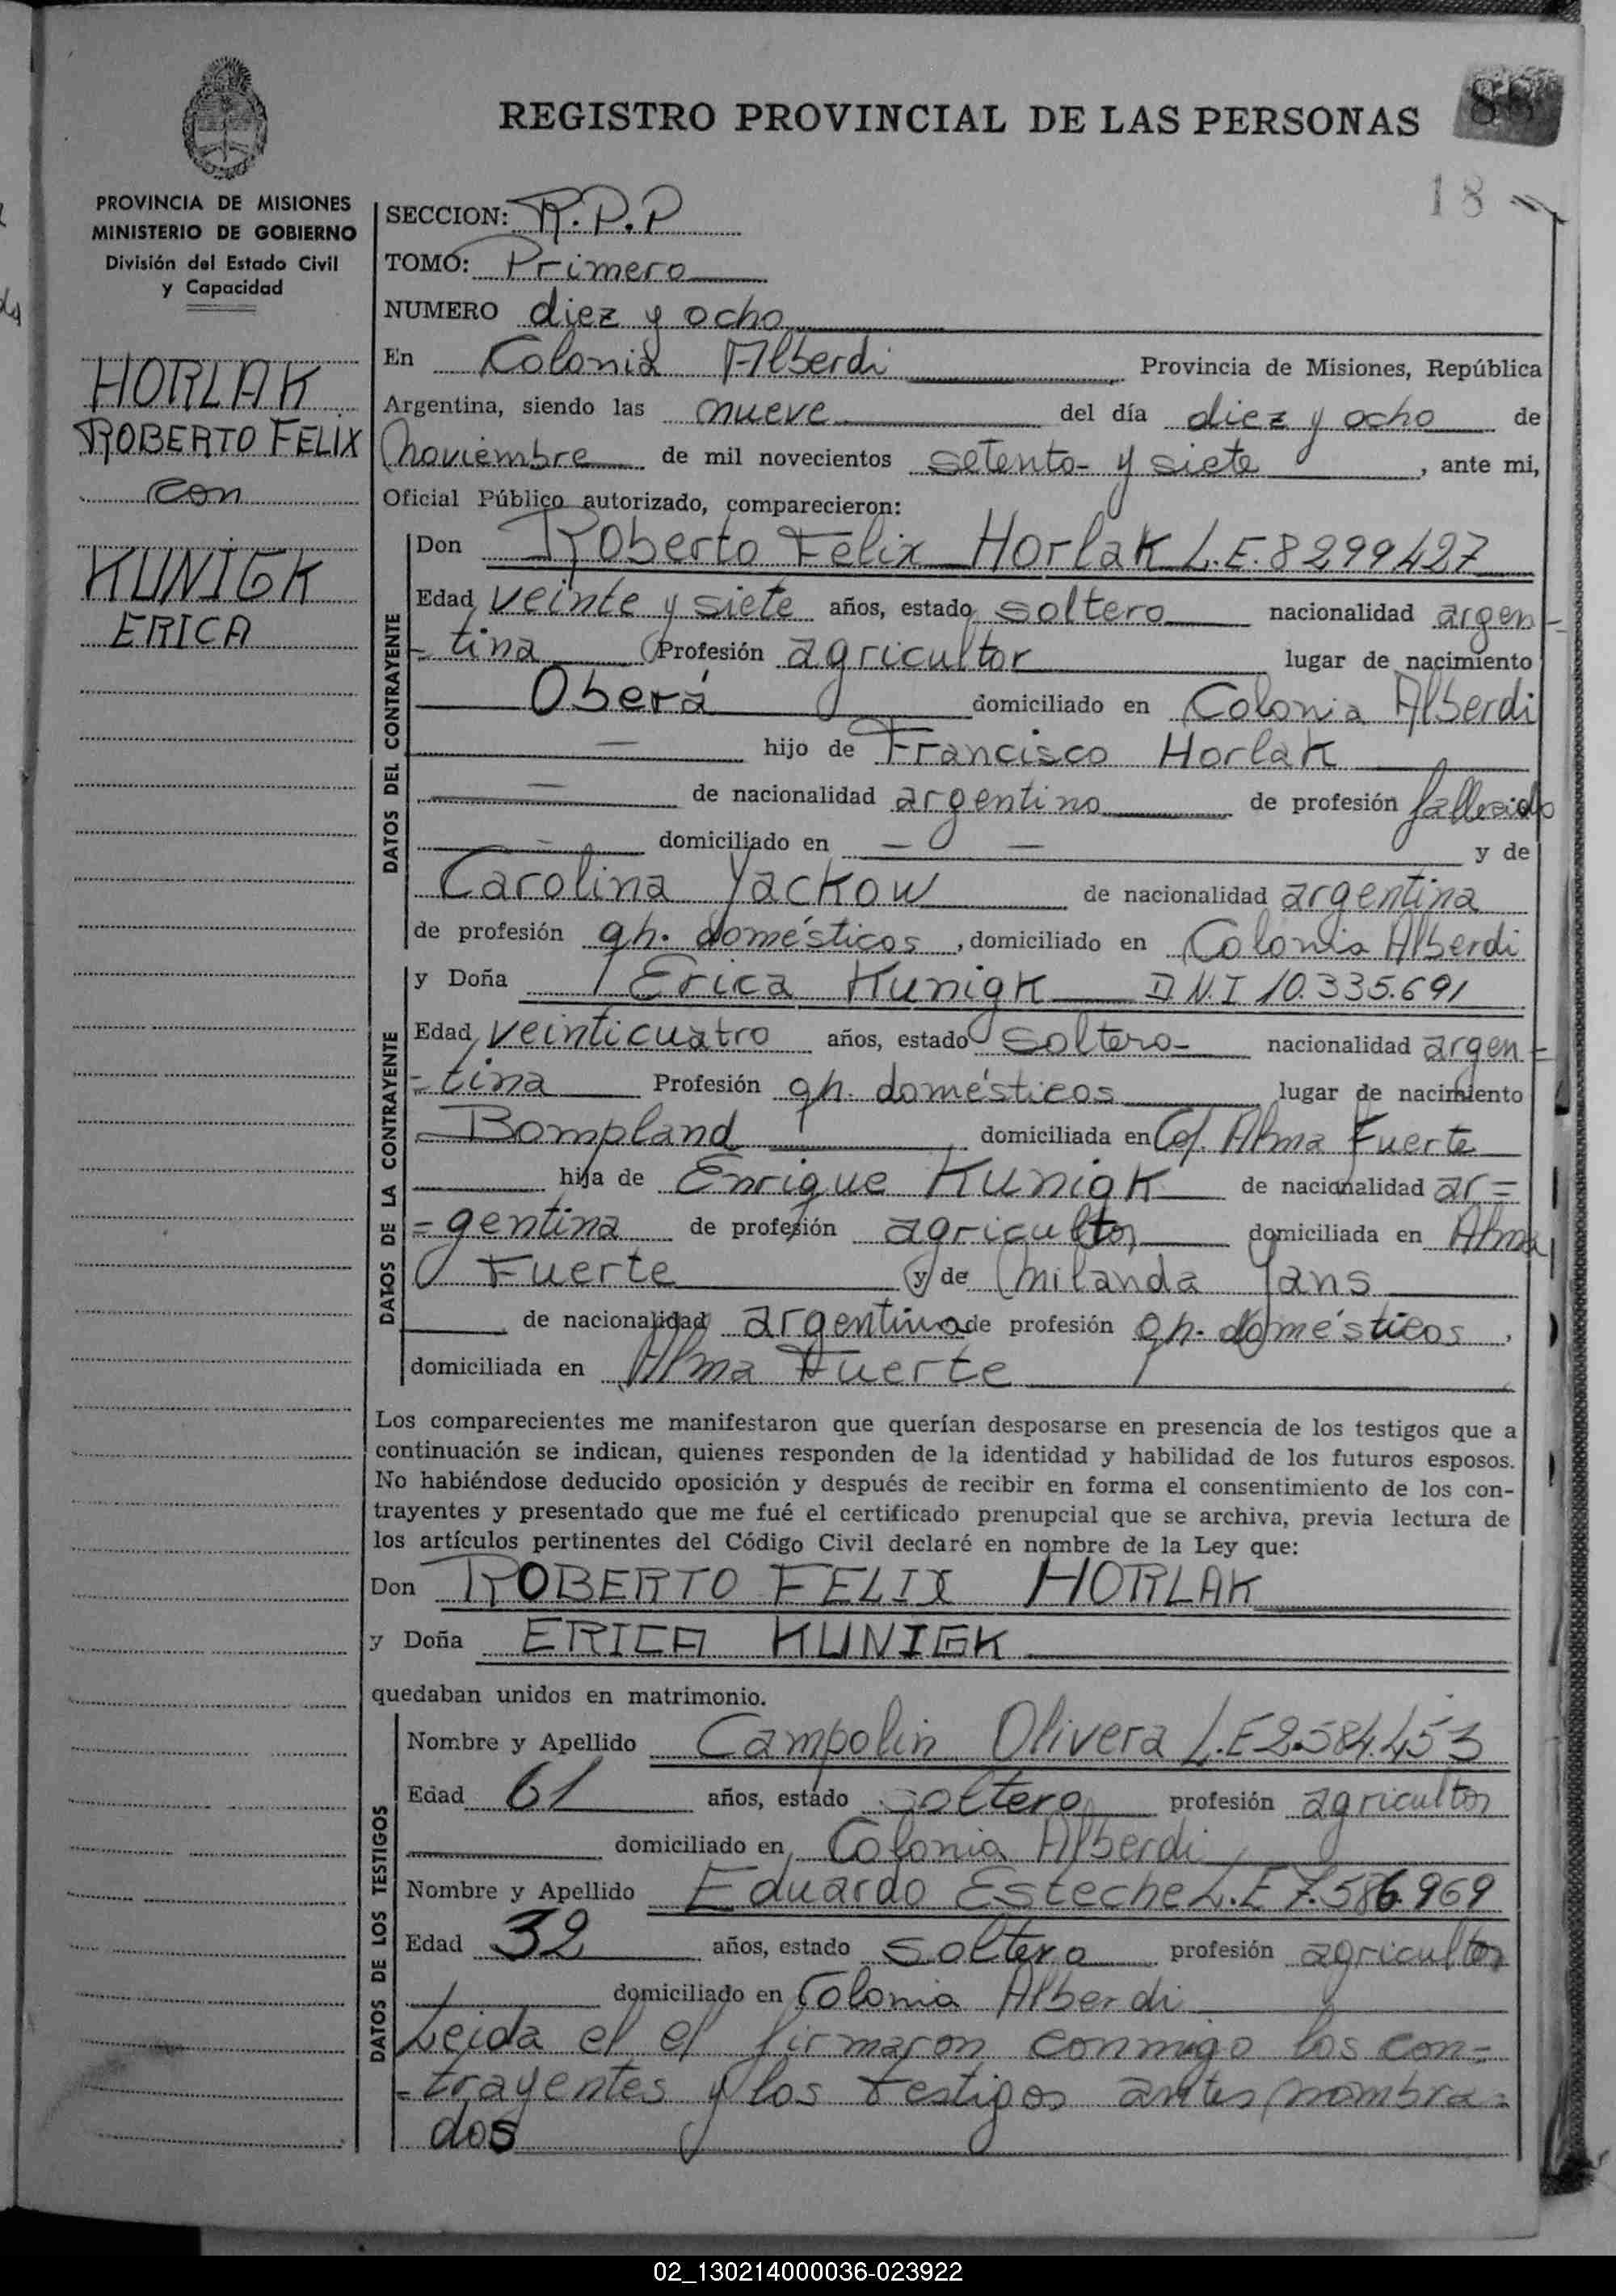 REGISTRO PROVINCIAL DE LAS PERSONAS
88
18
PROVINCIA DE MISIONES
MINISTERIO DE GOBIERNO
División del Estado Civil
y Capacidad
HORLAK
ROBERTO FELIX
con
KUNIGK
ERICA
SECCION: R.P.P
TOMO: Primero
NUMERO diez y ocho
En Colonia Alberdi Provincia de Misiones, República
Argentina, siendo las nueve del día diez y ocho de
noviembre de mil novecientos setenta y siete, ante mi,
Oficial Público autorizado, comparecieron:
DATOS DEL CONTRAYENTE
Don Roberto Felix Horlak L.E. 8299427
Edad veinte y siete años, estado soltero nacionalidad argen=
=tina Profesión agricultor lugar de nacimiento
Oberá domiciliado en Colonia Alberdi
— hijo de Francisco Horlak
— de nacionalidad argentino de profesión fallecido
— domiciliado en — — y de
Carolina Yackow de nacionalidad argentina
de profesión qh. domésticos, domiciliado en Colonia Alberdi
DATOS DE LA CONTRAYENTE
y Doña Erica Kunigk D.N.I 10.335.691
Edad veinticuatro años, estado soltera nacionalidad argen=
=tina Profesión qh. domésticos lugar de nacimiento
Bompland domiciliada en Col. Alma Fuerte
hija de Enrique Kunigk de nacionalidad ar=
=gentina de profesión agricultor domiciliada en Alma
Fuerte y de Milanda Jans
de nacionalidad argentina de profesión qh. domésticos,
domiciliada en Alma Fuerte
Los comparecientes me manifestaron que querían desposarse en presencia de los testigos que a
continuación se indican, quienes responden de la identidad y habilidad de los futuros esposos.
No habiéndose deducido oposición y después de recibir en forma el consentimiento de los con-
trayentes y presentado que me fué el certificado prenupcial que se archiva, previa lectura de
los artículos pertinentes del Código Civil declaré en nombre de la Ley que:
Don ROBERTO FELIX HORLAK
y Doña ERICA KUNIGK
quedaban unidos en matrimonio.
DATOS DE LOS TESTIGOS
Nombre y Apellido Campolin Olivera L.E 2.584.453
Edad 61 años, estado soltero profesión agricultor
domiciliado en Colonia Alberdi
Nombre y Apellido Eduardo Esteche L.E 7.586.969
Edad 32 años, estado soltero profesión agricultor
domiciliado en Colonia Alberdi
Leida el el firmaron conmigo los con=
=trayentes y los testigos antes nombra=
dos
02_130214000036-023922